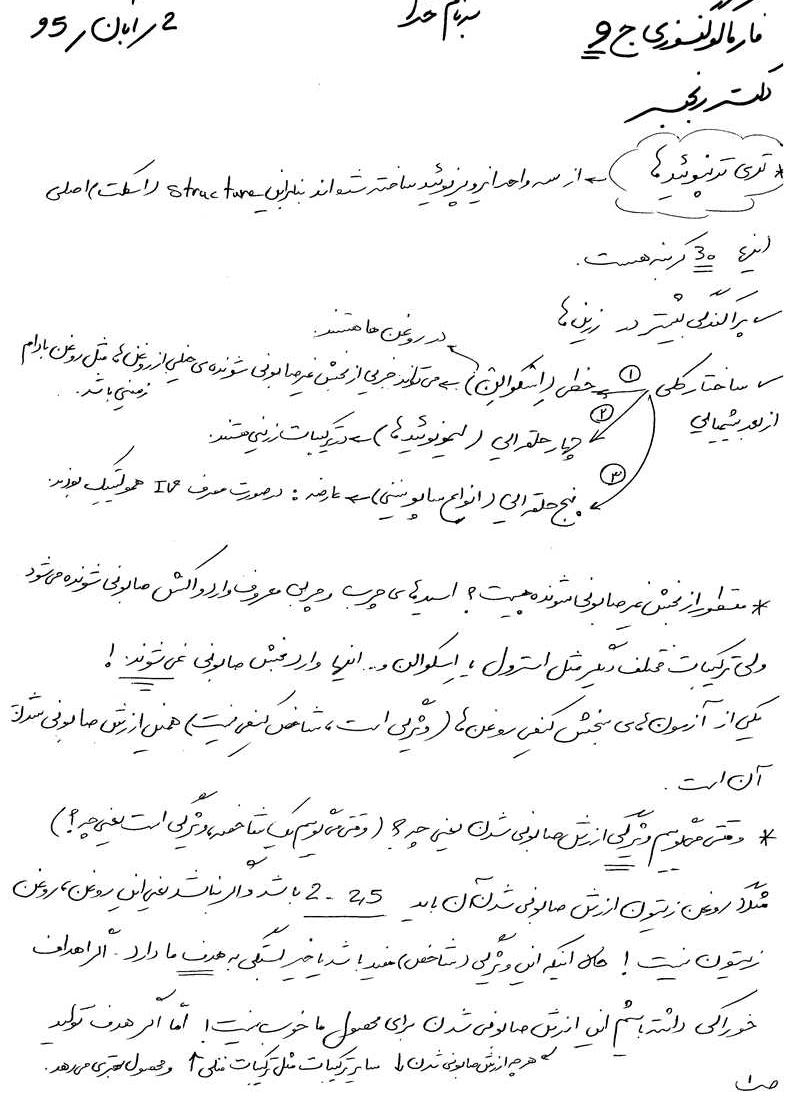 بنام خدا
2/آبان/95
فارماکوگنوزی ج 9
دکتر رنجبر
* تری ترپنوئیدها ← از سه واحد ایزوپرنوئید ساخته شده اند بنابراین structure (اسکلت) اصلی
اینها 30 کربنه هست.
✓ پراکندگی بیشتر در رزین ها
در روغن ها هستند.
✓ ساختار کلی ① خطی (اسکوالن) ← می تواند جزیی از بخش غیر صابونی شونده ی خیلی از روغن ها، مثل روغن بادام
زمینی باشد.
از بعد شیمیایی
② چهار حلقه ایی (لیمونوئیدها) ← در ترکیبات رزینی هستند.
③ پنج حلقه ایی (انواع ساپونینی) ← عارضه: در صورت مصرف IV همولیتیک بودند.
* منظور از بخش غیر صابونی شونده چیست؟ اسیدهای چرب و چربی معروف وارد واکنش صابونی شونده می شود
ولی ترکیبات مختلف دیگر مثل استرول یا اسکوالن و.. اینها وارد بخش صابونی نمی شوند!
یکی از آزمون های سنجش کیفی روغن ها (ویژگی است، شاخص کیفی نیست) همین ارزش صابونی شدن
آن است.
* وقتی می گوییم ویژگی ارزش صابونی شدن یعنی چه؟ (وقتی می گوییم یک شاخصه، ویژگی است یعنی چه؟)
مثلاً روغن زیتون ارزش صابونی شدن آن باید 2 - 2,5 باشد و اگر نباشد یعنی این روغن، روغن
زیتون نیست! حالا اینکه این ویژگی (شاخص) مفید باشد یا خیر بستگی به هدف ما دارد. اگر اهداف
خوراکی داشته باشیم این ارزش صابونی شدن برای محصول ما خوب نیست! اما اگر هدف تولید
هرچه ارزش صابونی شدن ↓ سایر ترکیبات مثل ترکیبات فنلی ↑ و محصول بهتری می دهد.
ص1